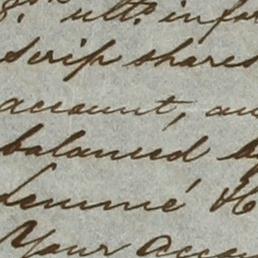 ult. infor
scrip shares
account, an
balanced
Lemmé &
Your Accou